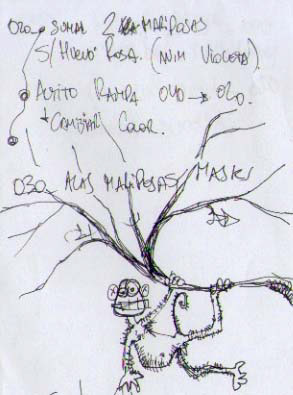 020 SUMAR 2 MARIPOSAS
S/ HUEVO ROSA. (NIM VIOLETA).
AUTITO RAMPA 040 → 020.
+ CAMBIAR COLOR.
030_ ALAS MARIPOSAS / MASKS